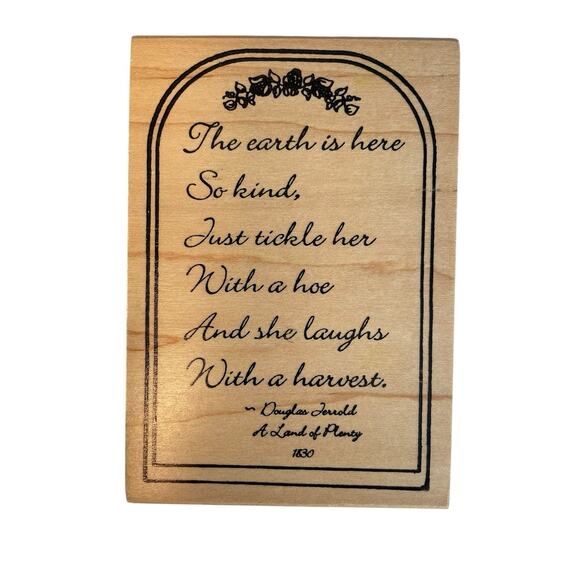 The earth is here
So kind,
Just tickle her
With a hoe
And she laughs
With a harvest.
~ Douglas Jerrold
A Land of Plenty
1830